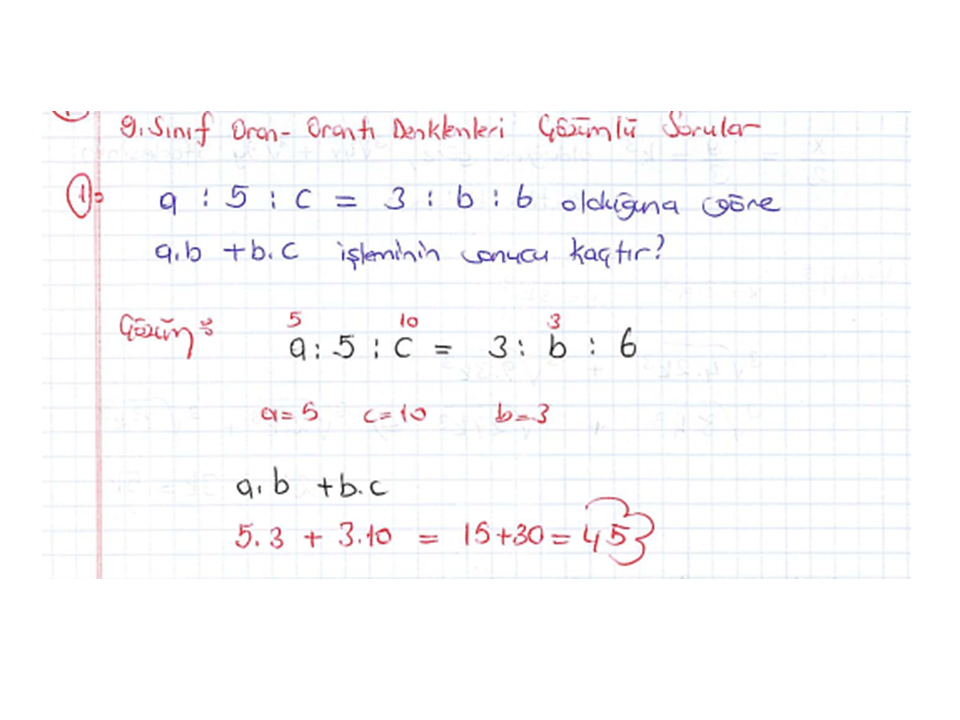 9. Sınıf Oran - Orantı Denklemleri Çözümlü Sorular
1) a : 5 : c = 3 : b : 6 olduğuna göre
a.b + b.c işleminin sonucu kaçtır?
Çözüm:
5 10 3
a : 5 : c = 3 : b : 6
a=5 c=10 b=3
a.b + b.c
5.3 + 3.10 = 15+30 = 45